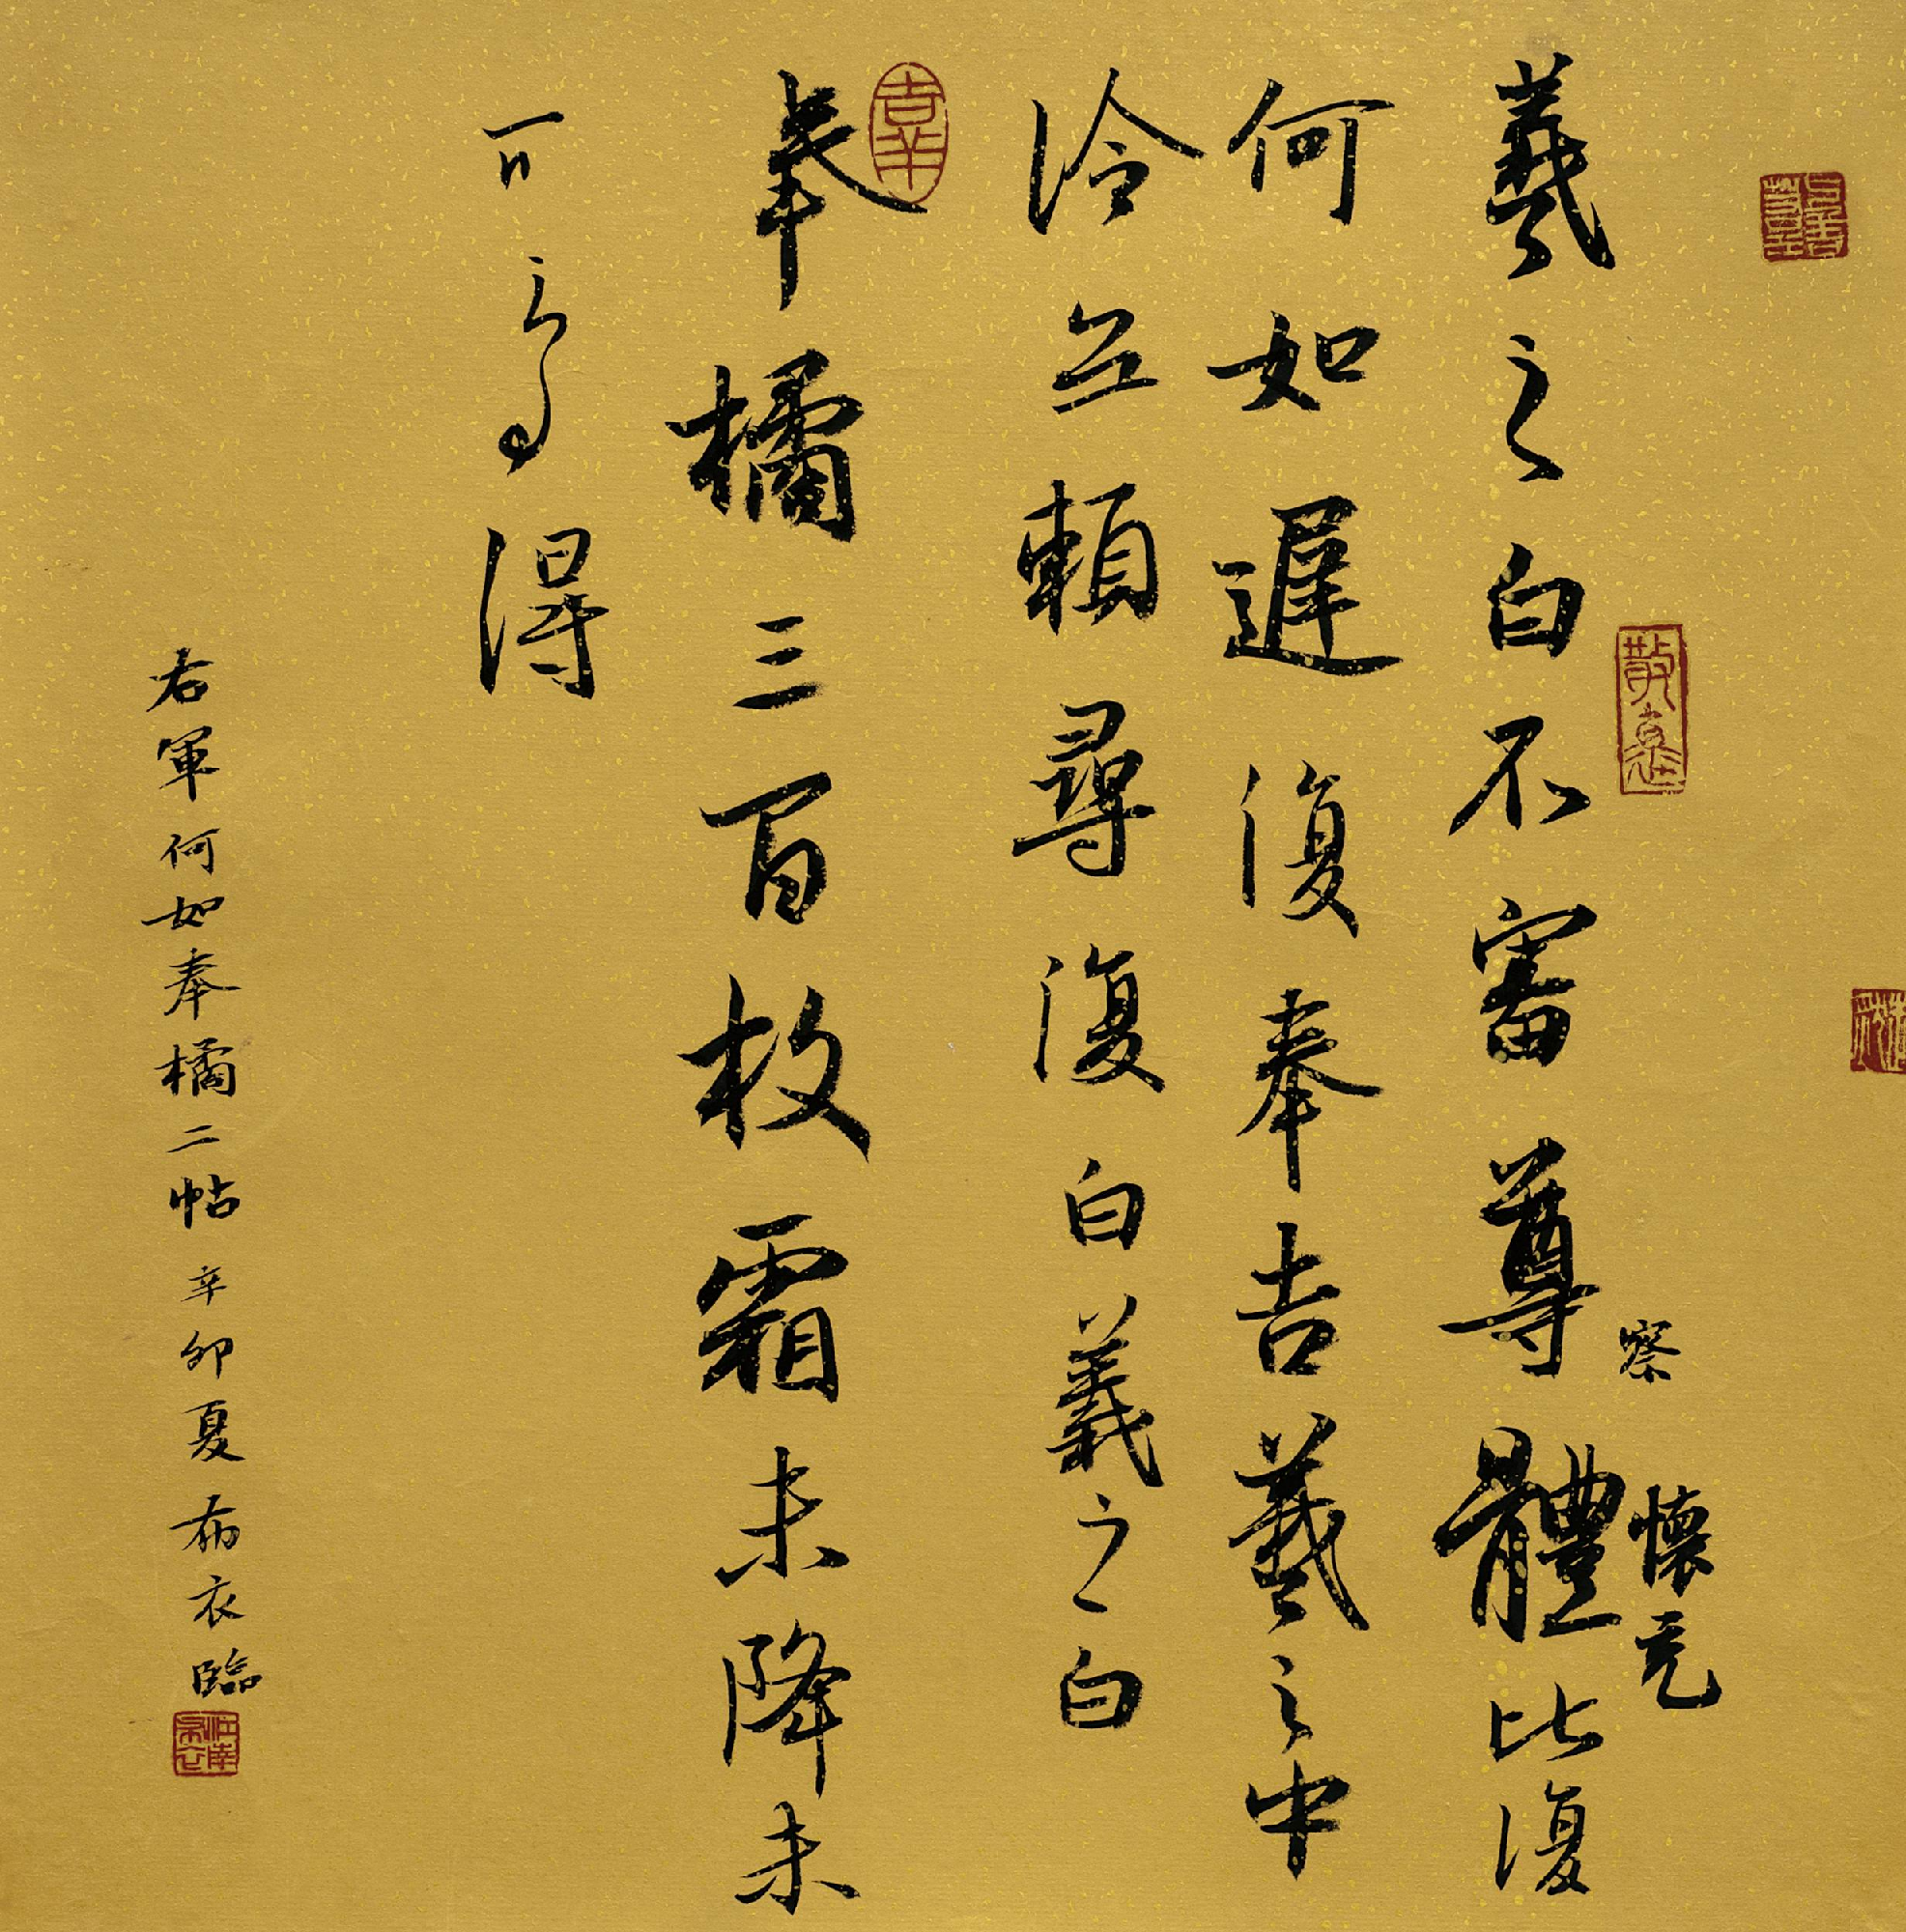 察 懷充
羲之白不審尊體比復
何如遲復奉告羲之中
冷無賴尋復白羲之白
奉橘三百枚霜未降未
可多得
右軍何如奉橘二帖 辛卯夏布衣臨